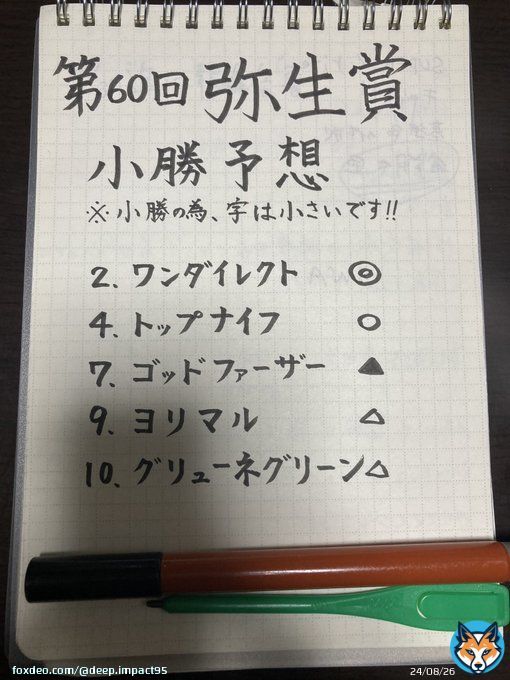 第60回 弥生賞
小勝予想
※小勝の為、字は小さいです!!
2. ワンダイレクト ◎
4. トップナイフ ○
7. ゴッドファーザー ▲
9. ヨリマル △
10. グリューネグリーン△
foxdeo.com/@deep.impact95
24/08/26